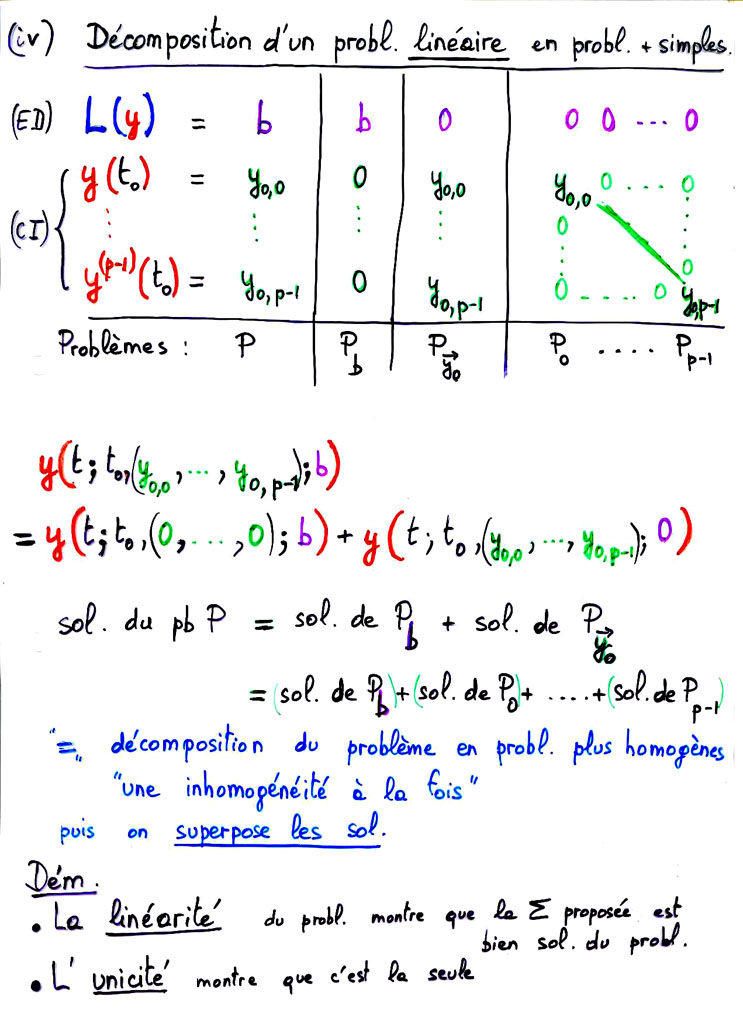 (iv) Décomposition d'un probl. linéaire en probl. + simples.
(ED) L(y) = b b 0 0 0 ... 0
(CI) y(t₀) = y₀,₀ 0 y₀,₀ y₀,₀ 0 .... 0
⋮ ⋮ ⋮ ⋮ 0 ⋮
⋮ 0
y⁽ᵖ⁻¹⁾(t₀) = y₀,p-1 0 y₀,p-1 0 .... 0 y₀,p-1
Problèmes : P P_b P_y⃗₀ P₀ .... P_p-1
y(t; t₀,(y₀,₀, ..., y₀,p-1); b)
= y(t; t₀,(0, ..., 0); b) + y(t; t₀,(y₀,₀, ..., y₀,p-1); 0)
sol. du pb P = sol. de P_b + sol. de P_y⃗₀
= (sol. de P_b) + (sol. de P₀) + .... + (sol. de P_p-1)
"=" décomposition du problème en probl. plus homogènes
"une inhomogénéité à la fois"
puis on superpose les sol.
Dém.
• La linéarité du probl. montre que la Σ proposée est
bien sol. du probl.
• L'unicité montre que c'est la seule